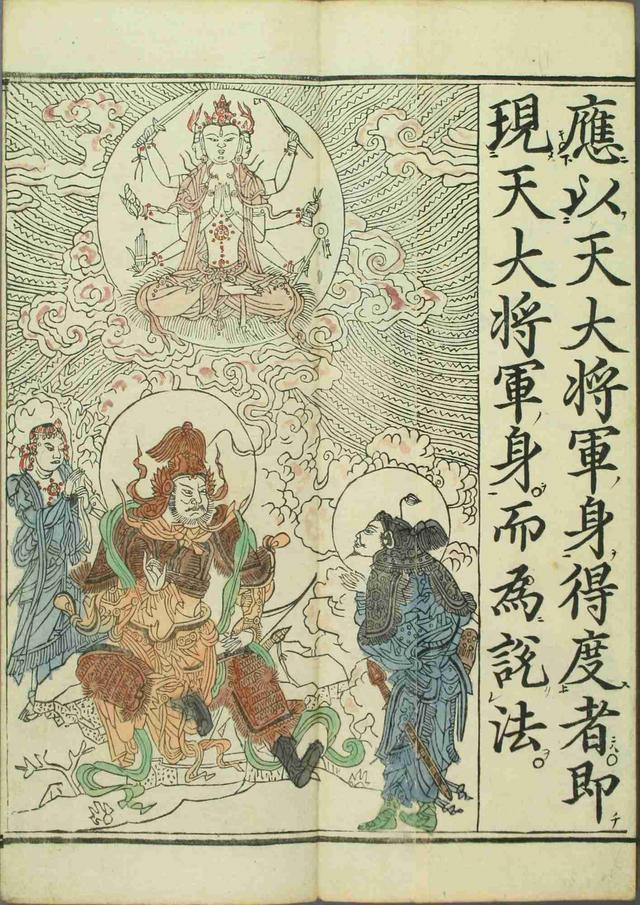 應以天大将軍身得度者即
現天大将軍身而為説法